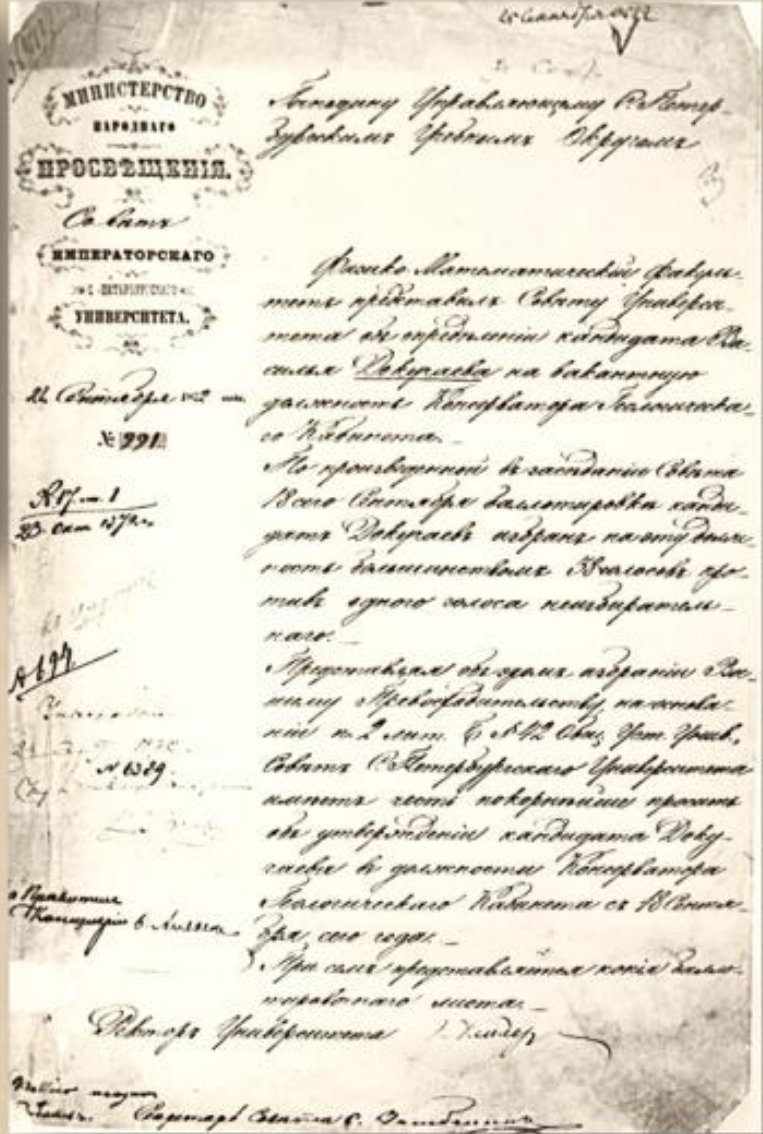 25 Сентября 1872
МИНИСТЕРСТВО
НАРОДНАГО
ПРОСВѢЩЕНІЯ.
Совѣтъ
ИМПЕРАТОРСКАГО
С.-ПЕТЕРБУРГСКАГО
УНИВЕРСИТЕТА.
22 Сентября 1872
№ 991
23 Окт 1872 г.
№ 6389
Господину Управляющему С. Петер-
бургскимъ Учебнымъ Округомъ
Физико Математическій Факуль-
тетъ представилъ Совѣту Универси-
тета объ опредѣленіи кандидата Ва-
силья Докучаева на вакантную
должность Консерватора Геологическа-
го Кабинета.
По произведенной въ засѣданіи Совѣта
18 сего Сентября баллотировкѣ канди-
датъ Докучаевъ избранъ на эту долж-
ность большинствомъ голосовъ про-
тивъ одного голоса неизбиратель-
наго.
Представляя объ этомъ избраніи Ва-
шему Превосходительству, на основа-
ніи п. 2 лит. § 42 Общ. Уст. Унив.,
Совѣтъ С. Петербургскаго Университета
имѣетъ честь покорнѣйше просить
объ утвержденіи кандидата Доку-
чаева въ должности Консерватора
Геологическаго Кабинета съ 18 Сентя-
бря сего года.
При семъ представляется копія балло-
тировочнаго листа.
Ректоръ Университета
Секретарь Совѣта